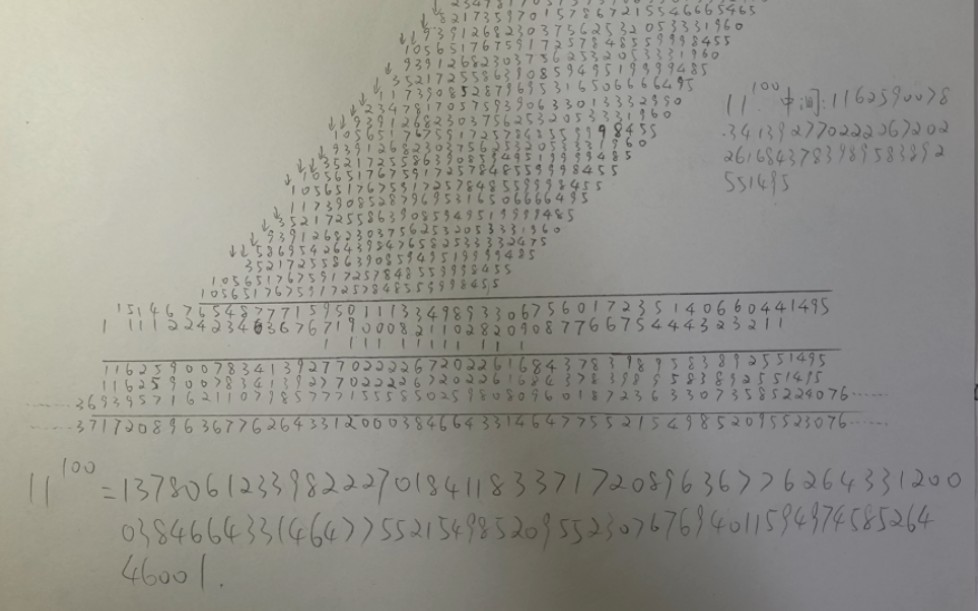 821735970157867215546665465
939126823037562532053331960
1056517675917257848559998455
939126823037562532053331960
352172558639085949519999485
117390852879695316506666495
234781705759390633013332990
939126823037562532053331960
1056517675917257848559998455
939126823037562532053331960
352172558639085949519999485
1056517675917257848559998455
1056517675917257848559998455
117390852879695316506666495
352172558639085949519999485
939126823037562532053331960
586954264398476582533332475
352172558639085949519999485
1056517675917257848559998455
1056517675917257848559998455
1514676548777159501113349893306756017235140660441495
1 11122423463676719000821102820908776675444323211
1 111 11111 111
116259007834139277022226720226168437839895583892551495
116259007834139277022226720226168437839895583892551495
......369395716211079857771555585025980809601872363307358522 4076......
......371720896367762643312000384664331464775521549852095523076......
11^100 中间:1162590078
341392770222267202
26168437839895583892
551495
11^100=137806123398222701841183371720896367762643312000
0384664331464775521549852095523076769401159497458585264
46001.